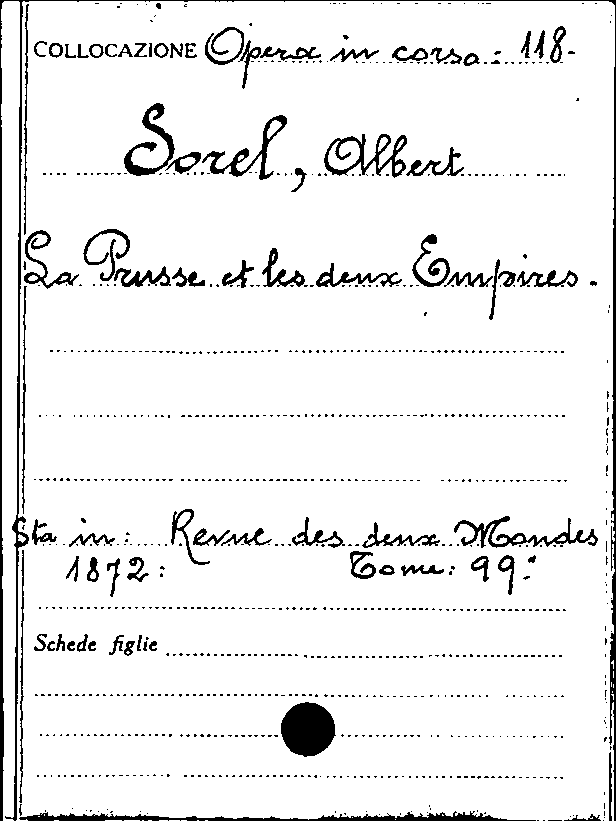 COLLOCAZIONE Opera in corso: 118.
Sorel, Albert
La Prusse et les deux Empires.
Sta in: Revue des deux Mondes
1872: Tome: 99:
Schede figlie